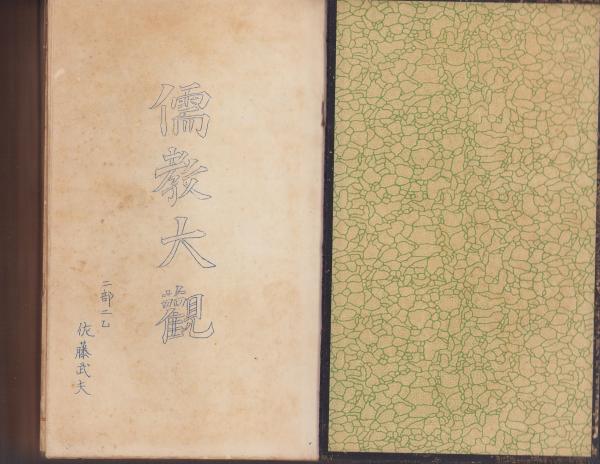 儒教大觀
二部二乙
佐藤武夫